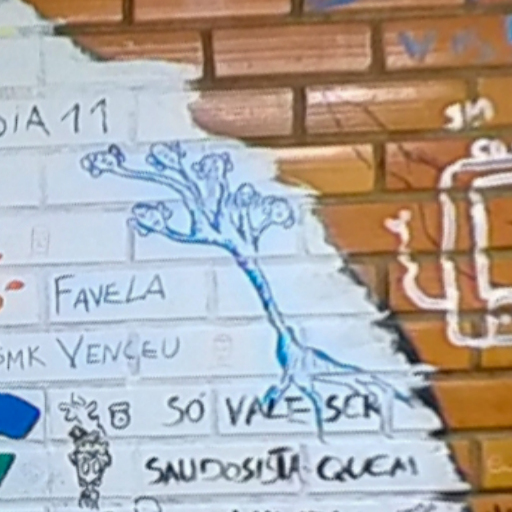 DIA 11
FAVELA
SMK VENCEU
SÓ VALE SER
SAUDOSISTA QUEM